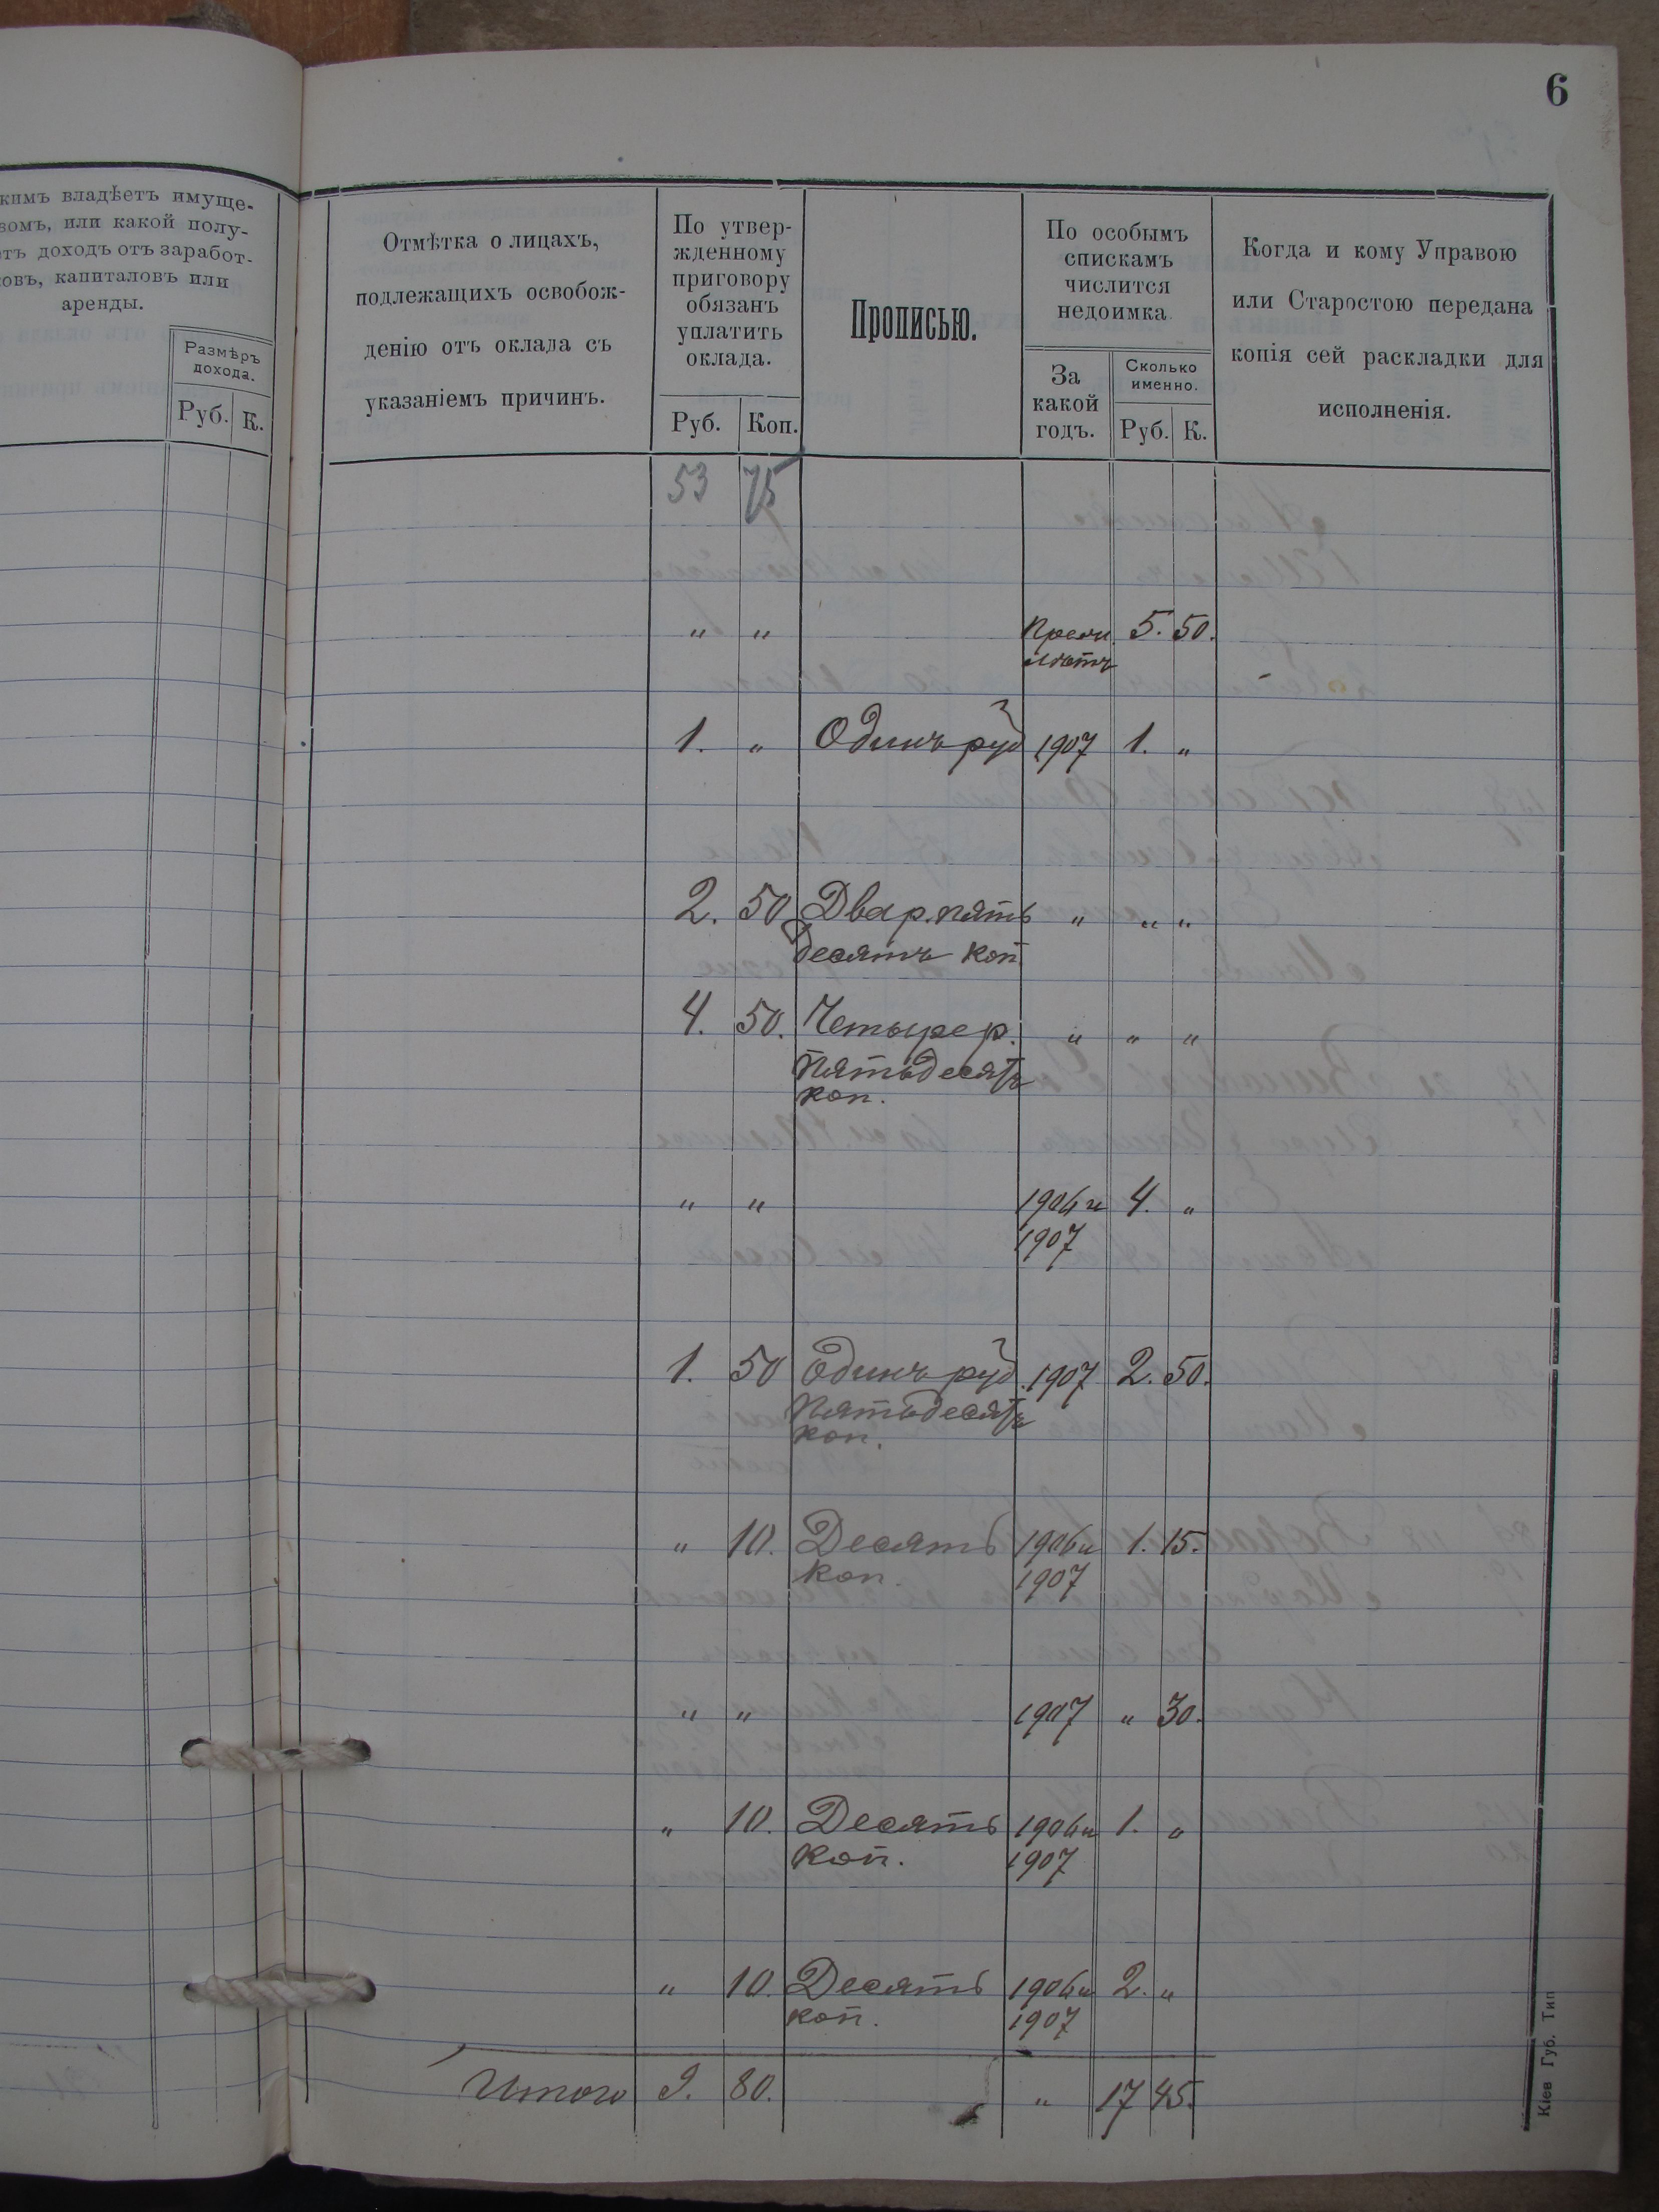 6
кимъ владѣетъ имуще-
вомъ, или какой полу-
етъ доходъ отъ заработ-
ковъ, капиталовъ или
аренды.
Размѣръ
дохода.
Руб. К.
Отмѣтка о лицахъ,
подлежащихъ освобож-
денію отъ оклада съ
указаніемъ причинъ.
По утвер-
жденному
приговору
обязанъ
уплатить
оклада.
Руб. Коп.
Прописью.
По особымъ
спискамъ
числится
недоимка
За
какой
годъ.
Сколько
именно.
Руб. К.
Когда и кому Управою
или Старостою передана
копія сей раскладки для
исполненія.
53 75
" " 5. 50.
1. " Одинъ руб 1907 1. "
2. 50 Два р. пять " " "
десятъ коп
4. 50. Четыре р. " " "
пятьдесятъ
коп.
" " 1906 и 4. "
1907
1. 50 Одинъ руб. 1907 2. 50.
пятьдесятъ
коп.
" 10. Десять 1906 и 1. 15.
коп. 1907
" " 1907 " 30.
" 10. Десять 1906 и 1. "
коп. 1907
" 10. Десять 1906 и 2. "
коп. 1907
Итого 9. 80. " 17 45.
Кіев Губ. Тип